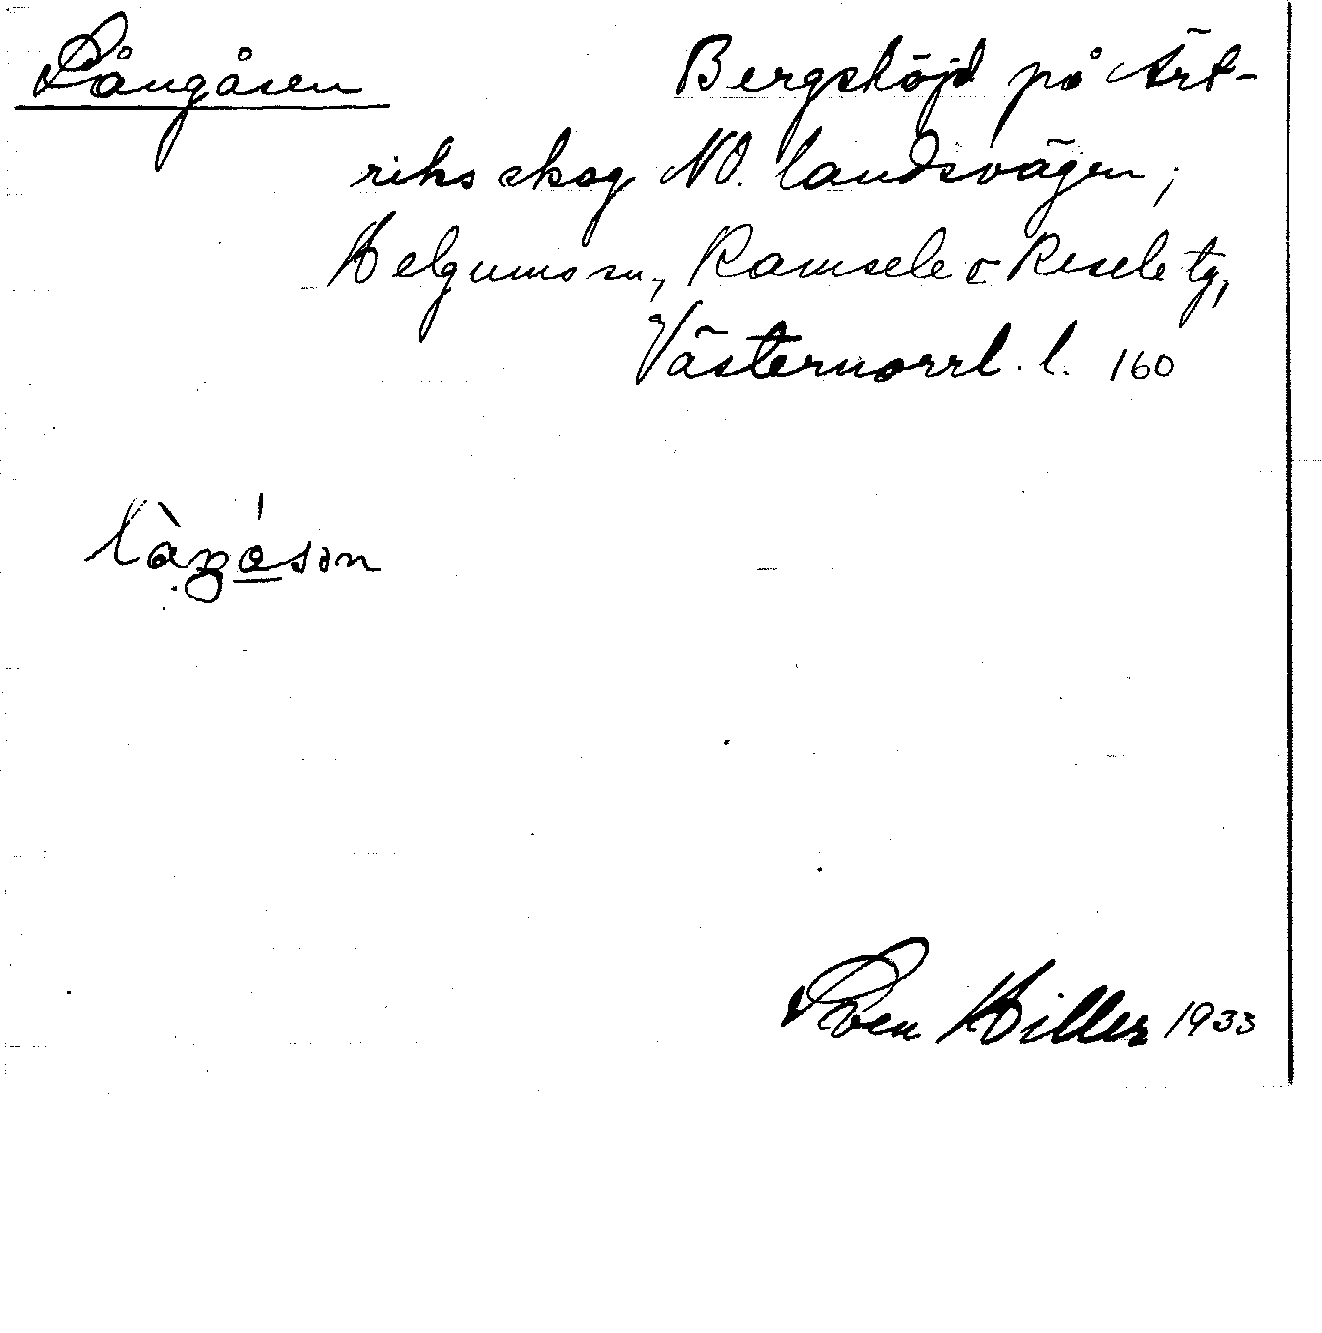 Långåsen Bergshöjd på Ärt-
riks skog NO. landsvägen;
Helgums sn, Ramsele o Resele tg,
Västernorrl. l. 160
Sven Hiller 1933